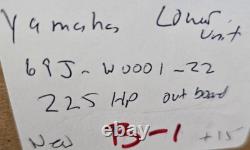 Yamaha Lower
Unit
69J-W0001-22
225 HP out board
New B-1 +15